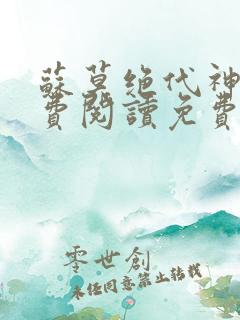 蘇莫絕代神
費閱讀免費
零世創
未經同意禁止轉載